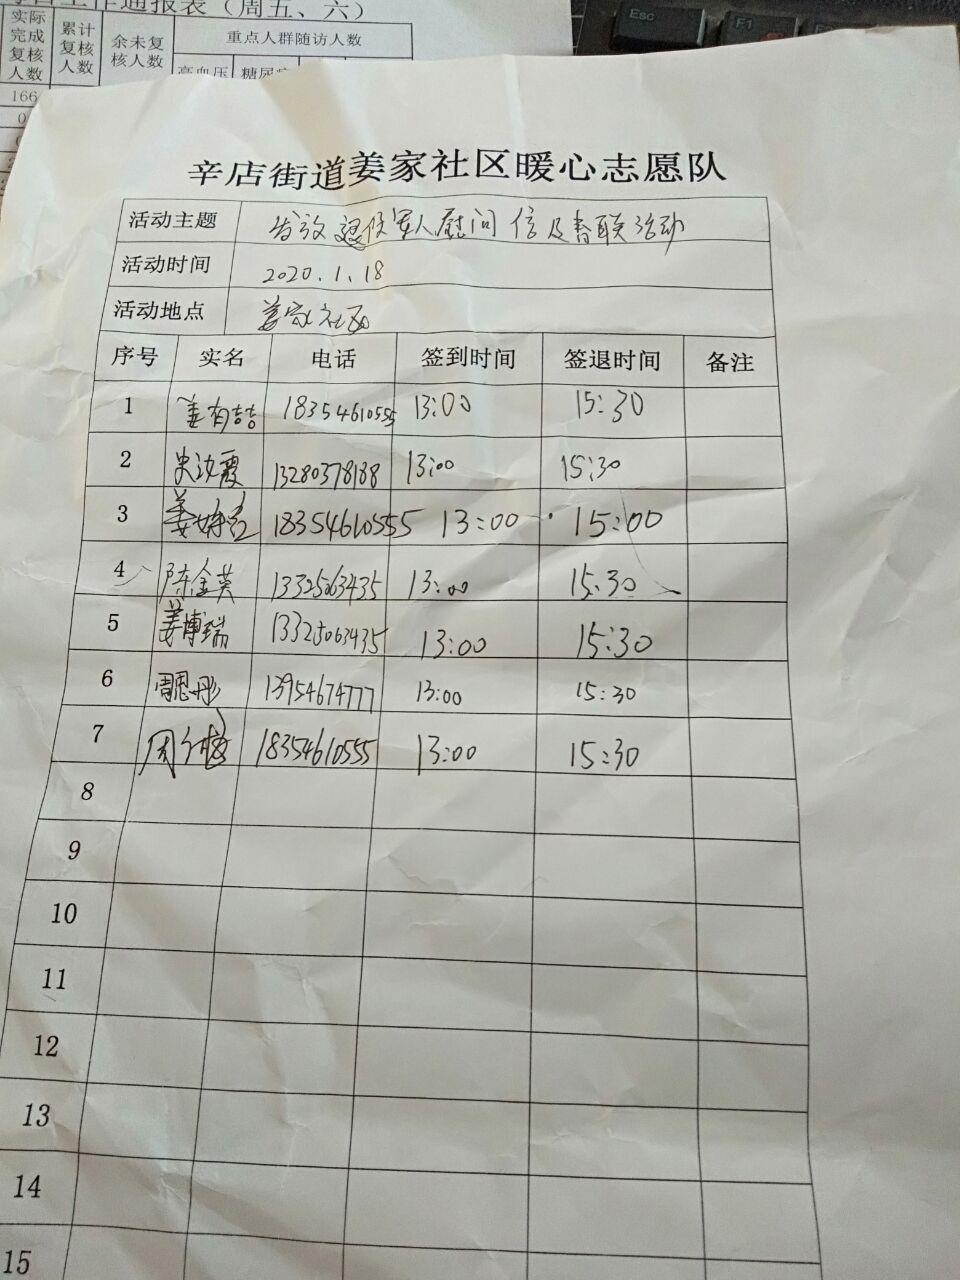 工作通报表（周五、六）
实际完成复核人数 累计复核人数 余未复核人数 重点人群随访人数
高血压 糖尿病
166
Esc F1
辛店街道姜家社区暖心志愿队
活动主题 发放退役军人慰问信及春联活动
活动时间 2020.1.18
活动地点 姜家社区
序号 实名 电话 签到时间 签退时间 备注
1 姜有喆 18354610555 13:00 15:30
2 史汝霞 13280378188 13:00 15:30
3 姜婷 18354610555 13:00 15:00
4 陈金英 13325063435 13:00 15:30
5 姜博瑞 13325063435 13:00 15:30
6 周思彤 13954674777 13:00 15:30
7 周 18354610555 13:00 15:30
8
9
10
11
12
13
14
15